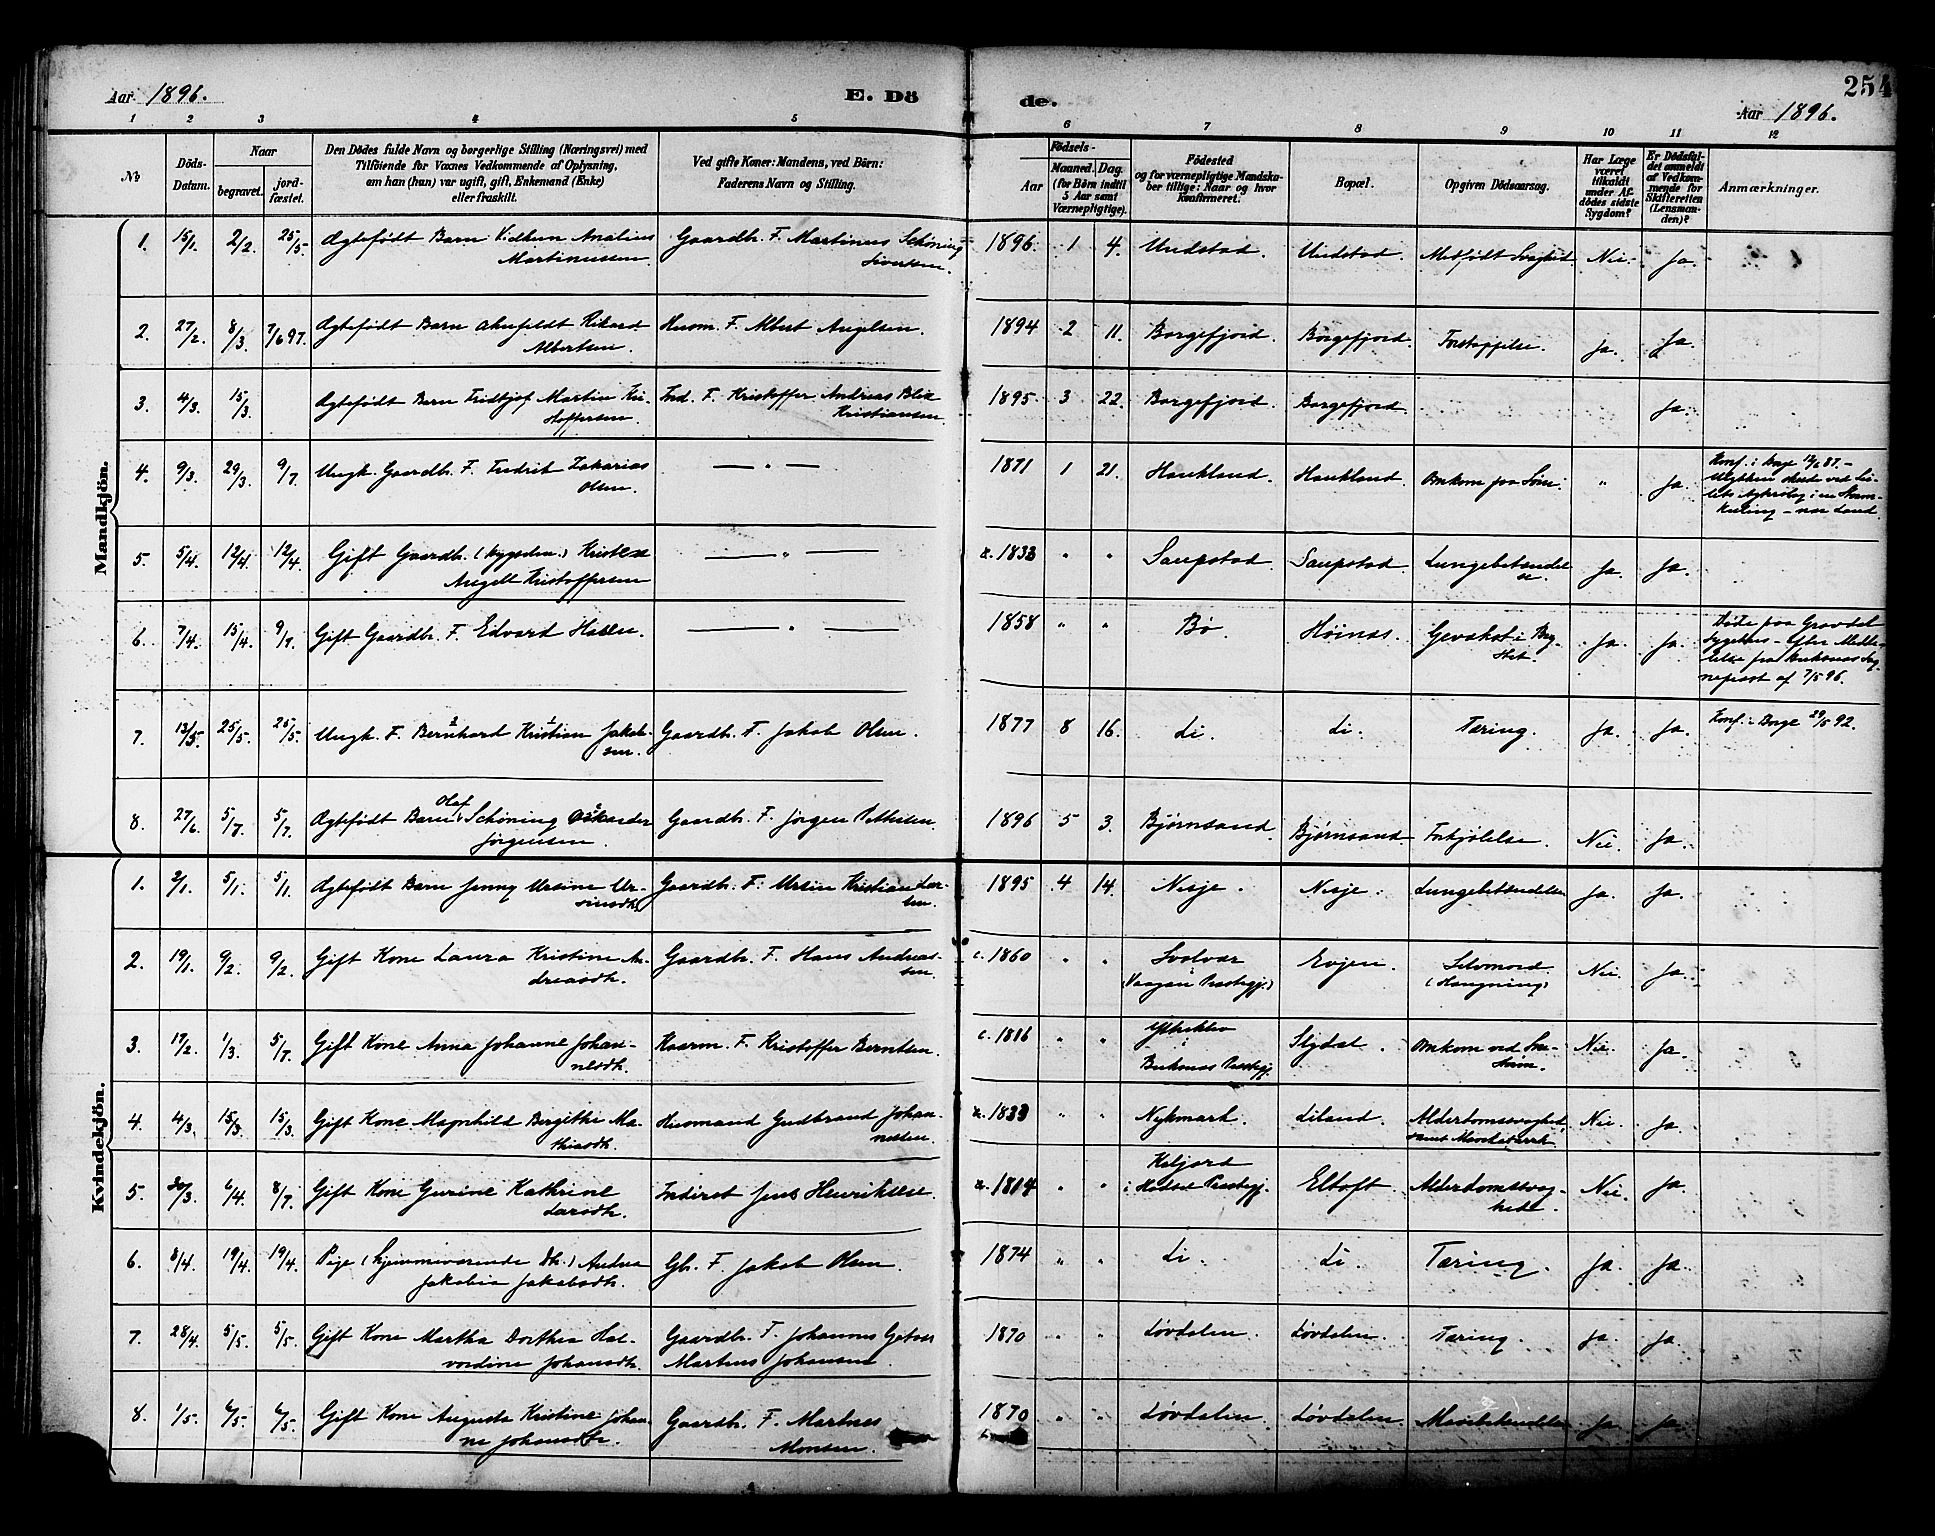 Aar 1896.
E. Dö
de.
Aar 1896.
254
1 2 3 4 5 6 7 8 9 10 11 12
No
Döds-Datum.
Naar
begravet.
jord-fæstet.
Den Dödes fulde Navn og borgerlige Stilling (Næringsvei) med
Tilföiende for Voxnes Vedkommende af Oplysning,
om han (hun) var ugift, gift, Enkemand (Enke)
eller fraskilt.
Ved gifte Koner: Mandens, ved Börn:
Faderens Navn og Stilling.
Födsels-
Aar
Maaned. Dag.
(for Börn indtil
5 Aar samt
Værnepligtige).
Födested
og for værnepligtige Mandska-
ber tillige: Naar og hvor
konfirmeret.
Bopæl.
Opgiven Dödsaarsag.
Har Læge
været
tilkaldt
under Af-
dödes sidste
Sygdom?
Er Dödsfal-
det anmeldt
af Vedkom-
mende for
Skifteretten
(Lensman-
den)?
Anmærkninger.
Mandkjön.
1. 15/1. 2/2. 25/5. Ægtefødt Barn Vidkun Analius Martinussen Gaardb. F. Martinus Schøning Sivertsen. 1896. 1 4. Undstad. Undstad. Medfødt Svaghed. Nei. Ja.
2. 27/2. 8/3. 7/6 97. Ægtefødt Barn Ahnfeldt Rikard Albertsen. Husm. F. Albert Angelsen. 1894 2 11. Borgefjord. Borgefjord. Forstoppelse. Ja. Ja.
3. 4/3. 15/3. Ægtefødt Barn Fridtjof Martin Kristoffersen. Ind. F. Kristoffer Andreas Blix Kristiansen. 1895 3 22. Borgefjord. Borgefjord. Ja.
4. 9/3. 29/3. 9/7. Ungk. Gaardb. F. Fredrik Zakarias Olsen. — " — 1871 1 21. Haukland. Haukland. Omkom paa Søen. " Ja. Konf. i Borge
5. 5/4. 12/4. 12/4. Gift Gaardb. Kristen Angell Kristoffersen — " — c. 1833 " " Saupstad. Saupstad. Lungebetændelse. Ja. Ja.
6. 7/4. 15/4. 9/7. Gift Gaardb. F. Edvard Hansen. — " — 1858 " " Bø. Høinæs. Gevækst i Brystet. Ja. Ja. Døde paa Gravdal Sygehus - efter Meddelelse fra Buksnæs Sognepræst af 7/5 96.
7. 13/5. 25/5. 25/5. Ungk. F. Bernhard Kristian Jakobsen. Gaardb. F. Jakob Olsen. 1877 8 16. Li. Li. Tæring. Ja. Ja. Konf. i Borge 29/5 92.
8. 27/6. 5/7. 5/7. Ægtefødt Barn Olaf Schøning Jørgensen. Gaardb. F. Jørgen Pettersen. 1896 5 3. Bjørnsand. Bjørnsand. Forkjølelse. Nei. Ja.
Kvindekjön.
1. 2/1. 5/1. 5/1. Ægtefødt Barn Jenny Ursine Ursinsdtr. Gaardb. F. Ursin Kristian Larsen. 1895 4 14. Nesje. Nesje. Lungebetændelse Ja. Ja.
2. 19/1. 9/2. 9/2. Gift Kone Laura Kristine Andreasdtr. Gaardb. F. Hans Andreassen. c. 1860 " " Svolvær (Vaagan Prestegj.) Evjen. Selvmord (Hængning) Nei Ja.
3. 17/2. 1/3. 5/7. Gift Kone Anna Johanne Johannesdtr. Kaarm. F. Kristoffer Berntsen. c. 1816 " " i Buksnæs Prestegj. Slydal. Omkom ved Snestorm. Nei. Ja.
4. 4/3. 15/3. 15/3. Gift Kone Magnhild Bergithe Mathiasdtr. Husmand Gudbrand Johannessen. c. 1833 " " Nykmark. Liland. Alderdomssvaghed samt Mavekatarrh. Nei. Ja.
5. 30/3. 6/4. 8/7. Gift Kone Gurine Kathrine Larsdtr. Inderst Jens Henriksen. c. 1814 " " Kaljord i Hadsel Prestegj. Eltoft. Alderdomssvaghed. Nei. Ja.
6. 8/4. 19/4. 19/4. Pige (hjemmeværende Dtr.) Andrea Jakobia Jakobsdtr. Gb. F. Jakob Olsen. 1874 " " Li. Li. Tæring. Ja. Ja.
7. 28/4. 5/5. 5/5. Gift Kone Martha Dorthea Halvordine Johansdtr. Gaardb. F. Johannes Martens Johansen. 1870 " " Løvdalen. Løvdalen. Tæring. Ja. Ja.
8. 1/5. 6/5. 6/5. Gift Kone Augusta Kristine Johanne Johansdtr. Gaardb. F. Martnes Monsen. 1870 " " Løvdalen. Løvdalen. Mavebetændelse Ja. Ja.